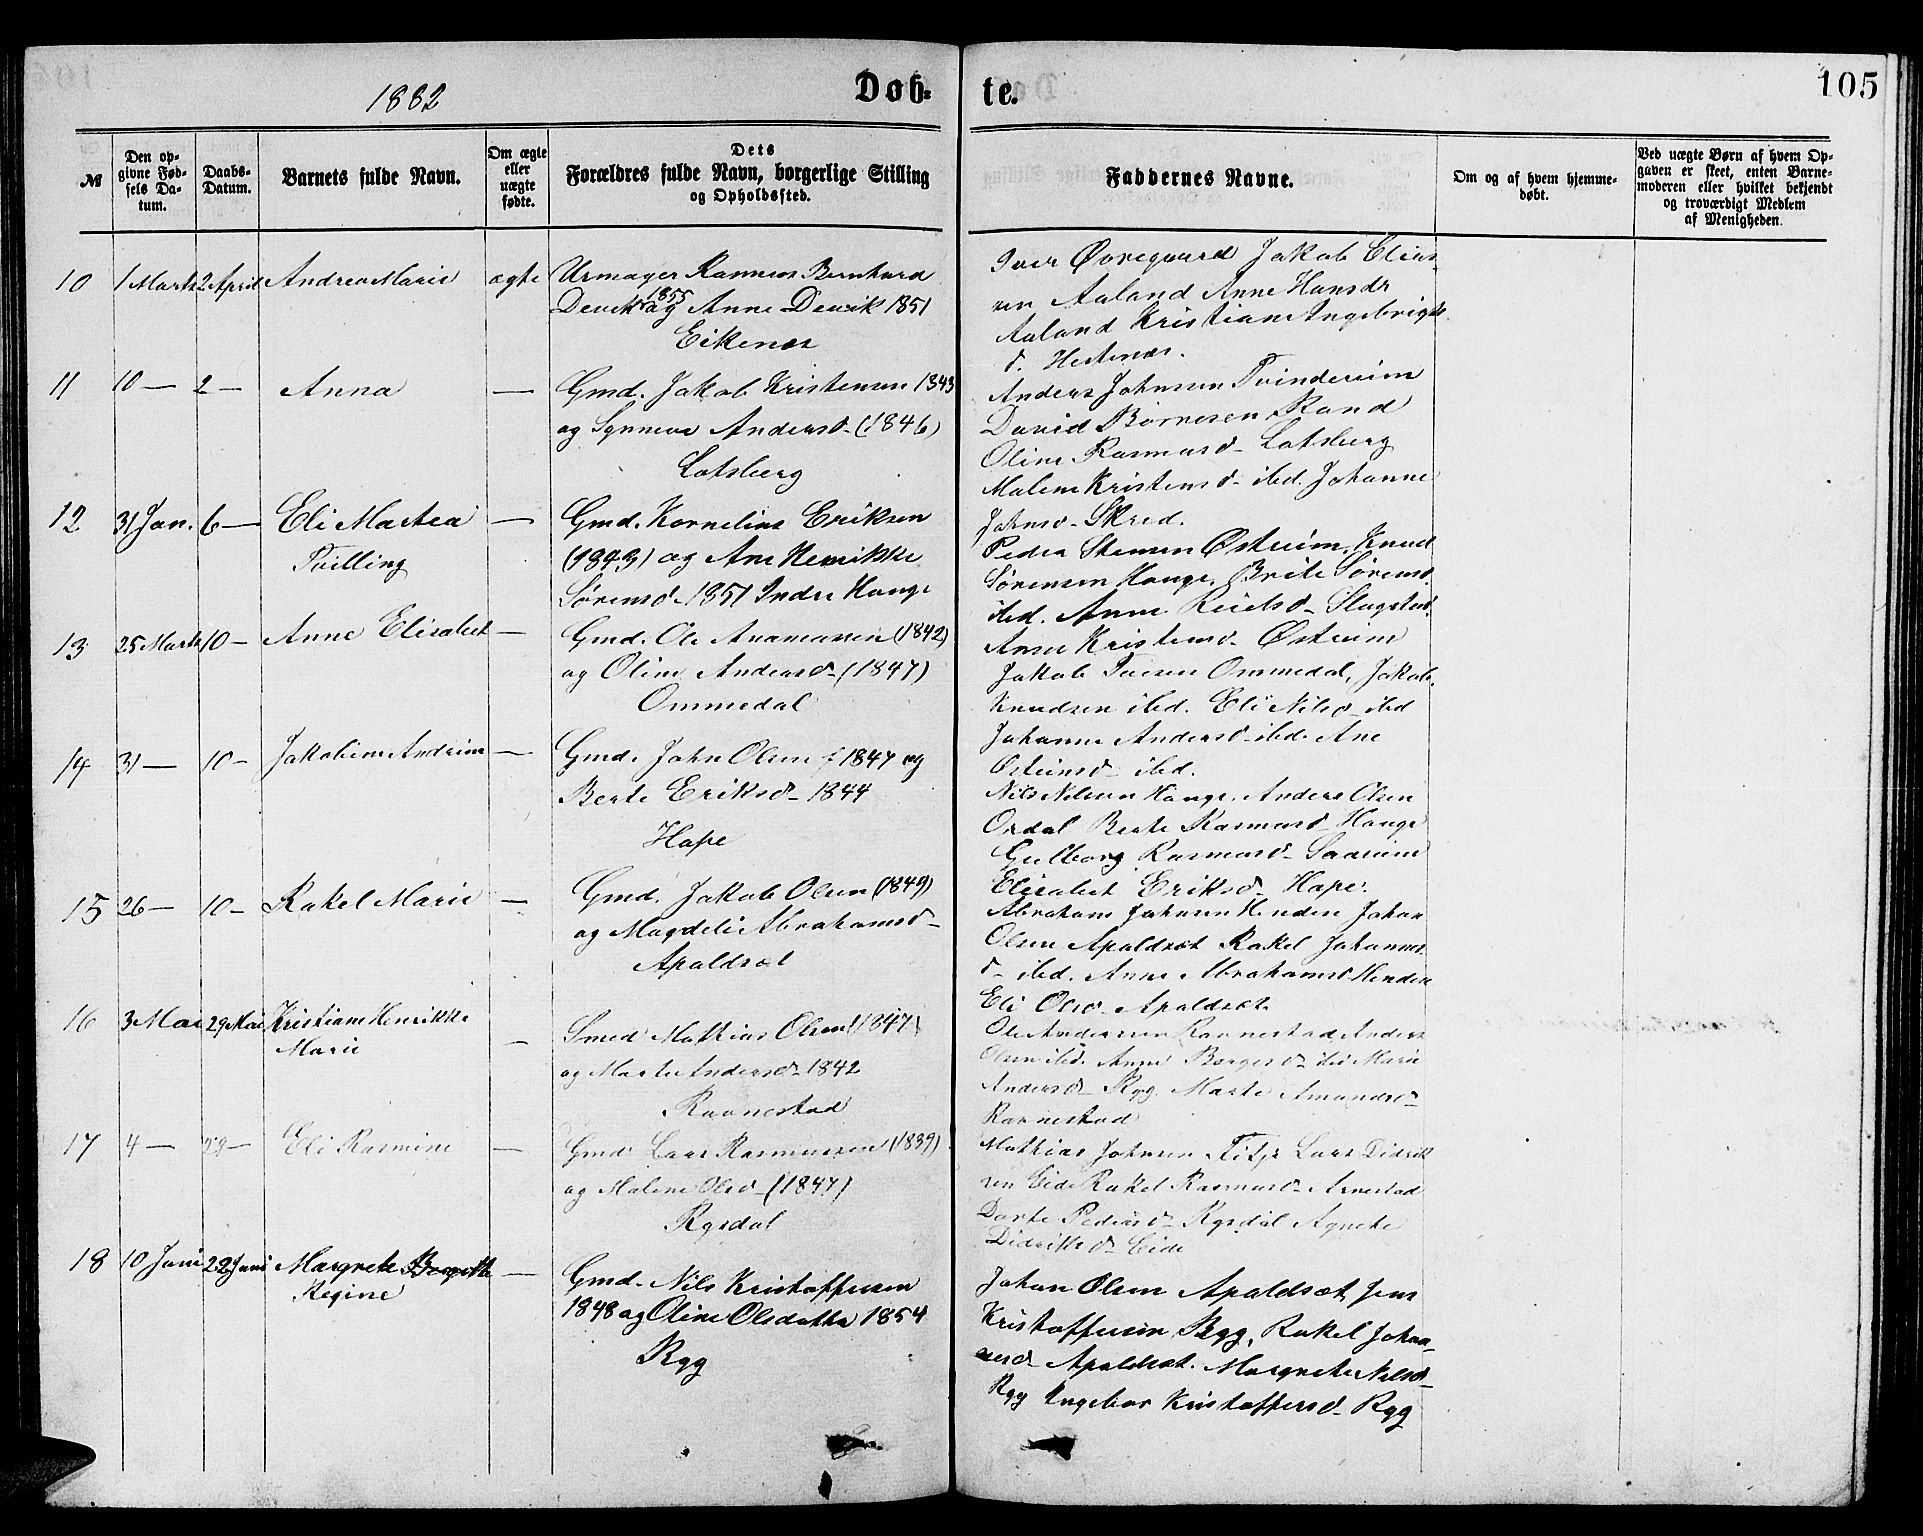 1882
Døb-
te.
105
№
Den op-
givne Fød-
sels Da-
tum.
Daabs-
Datum.
Barnets fulde Navn.
Om ægte
eller
uægte
fødte.
Dets
Forældres fulde Navn, borgerlige Stilling
og Opholdssted.
Faddernes Navne.
Om og af hvem hjemme-
døbt.
Ved uægte Børn af hvem Op-
gaven er skeet, enten Barne-
moderen eller hvilket bekjendt
og troværdigt Medlem
af Menigheden.
10 1 Marts 2 April Andrea Marie ægte
Urmager Rasmus Bernhard
Devik 1855 og Anne Devik 1851
Eikenes
Iver Øvregaard Jakob Elias-
sen Aaland Anne Hansdr
Aaland Kristiane Ingebrigts
d. Hestenes.
11 10 — 2 — Anna —
Gmd. Jakob Kristensen 1843
og Synneva Andersd- (1846)
Lotsberg
Anders Johnsen Tvindereim
David Børnesen Rand
Oline Rasmusd- Lotsberg
Malene Kristensd- ibd. Johanne
Johnsd- Skred.
12 31 Jan. 6 — Eli Martea —
Tvilling
Gmd. Kornelius Eriksen
(1843) og Ane Henrikke
Sørensd- 1851 Indre Hauge
Peder Stensen Østreim, Knud
Sørensen Hauge, Brite Sørensd.
ibd. Anne
Anne Kristensd- Østreim
13 25 Marts 10 — Anne Elisabet —
Gmd. Ole Ananassen (1842)
og Oline Andersd- (1847)
Ommedal
Jakob Iversen Ommedal, Jakob
Knudsen ibd. Eli Nilsd- ibd
Johanne Andersd- ibd. Ane
Østeinsd- ibd.
14 31 — 10 — Jakobine Andrine —
Gmd. John Olsen 1847 og
Berte Eriksd- 1844
Hope
Nils Nilsen Hauge, Anders Olsen
Ordal Berte Rasmusd- Hauge
Gulborg Rasmusd- Saareim
Elisabet Eriksd- Hope.
15 26 — 10 — Rakel Marie —
Gmd. Jakob Olsen (1849)
og Magdeli Abrahamsd-
Apaldset
Abraham Johnsen Henden Johan
Olsen Apaldset Rakel Johannes
d- ibd. Anne Abrahamsd Henden
Eli Olsd- Apaldset.
16 3 Mai 29 Mai Kristiane Henrikke
Marie —
Smed Mathias Olsen (1847)
og Marte Andersd- 1842
Ravnestad
Ole Andersen Ravnestad Anders
Olsen ibd. Anne Børgesd- ibd Marie
Andersd- Ryg. Marte Amundsd-
Ravnestad
17 4 — 29 — Eli Rasmine —
Gmd. Lars Rasmussen (1839)
og Malene Olsd- (1847)
Rysdal
Mathias Johnsen Fitje Lars Didrik
sen Eide Rakel Rasmusd- Arnestad
Dorte Pedersd- Rysdal Agnete
Didriksd- Eide
18 10 Juni 22 Juni Margrete Bergitte —
Regine
Gmd. Nils Kristoffersen
1848 og Oline Olsdatter 1854
Ryg
Johan Olsen Apaldset, Jens
Kristoffersen Ryg, Rakel Johan-
nesd- Apaldset. Margrete Nilsd-
Ryg Ingebor Kristoffersd- Ryg